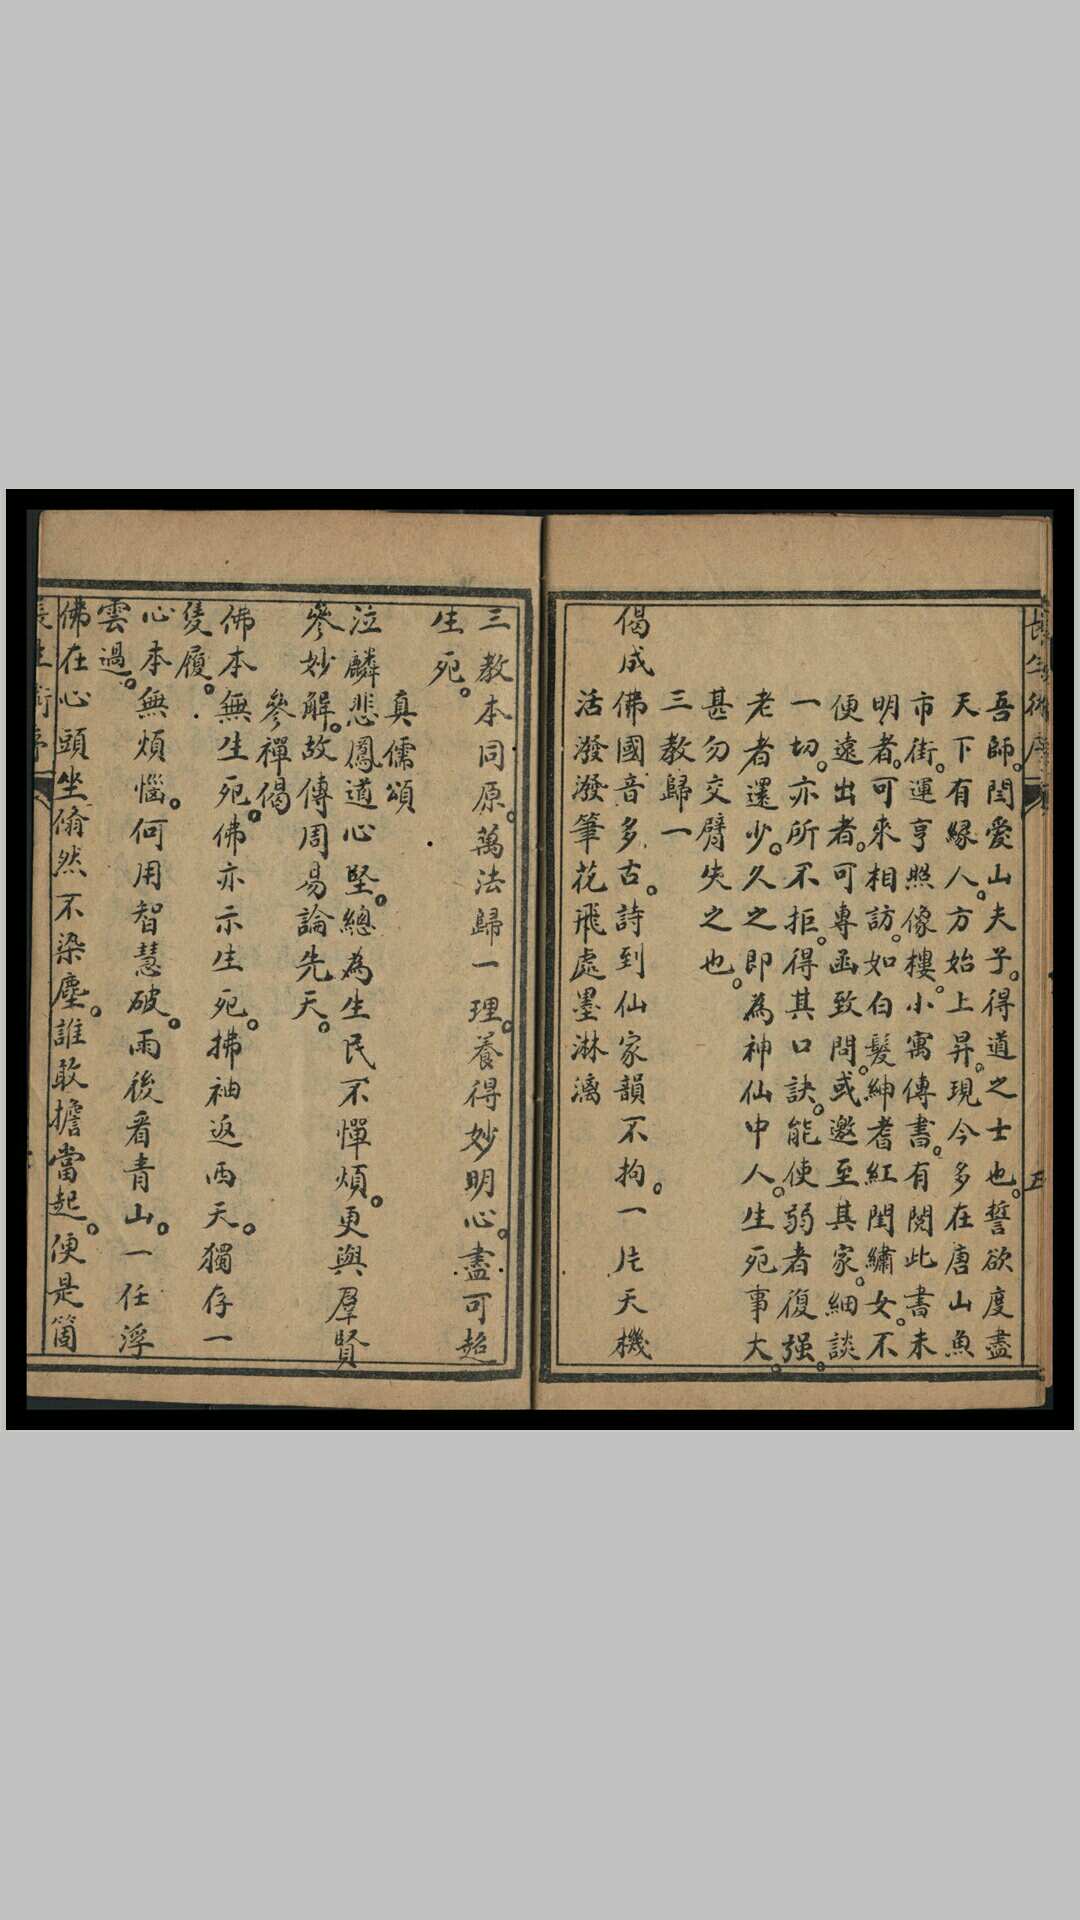 長生術序
五
吾師。閆愛山夫子。得道之士也。誓欲度盡
天下有緣人。方始上昇。現今多在唐山魚
市街。運亨照像樓。小寓傳書。有閱此書未
明者。可來相訪。如白髮紳耆紅閨繡女。不
便遠出者。可專函致問。或邀至其家。細談
一切。亦所不拒。得其口訣。能使弱者復强。
老者還少。久之即為神仙中人。生死事大。
甚勿交臂失之也。
三教歸一
偈成佛國音多古。詩到仙家韻不拘。一片天機
活潑潑筆花飛處墨淋漓
三教本同原。萬法歸一理。養得妙明心。盡可超
生死。
真儒頌
泣麟悲鳳道心堅。總為生民不憚煩。更與羣賢
參妙解。故傳周易論先天。
參禪偈
佛本無生死。佛亦示生死。拂袖返西天。獨存一
隻履。
心本無煩惱。何用智慧破。雨後看青山。一任浮
雲過。
佛在心頭坐翛然不染塵。誰敢擔當起。便是箇
長生術序